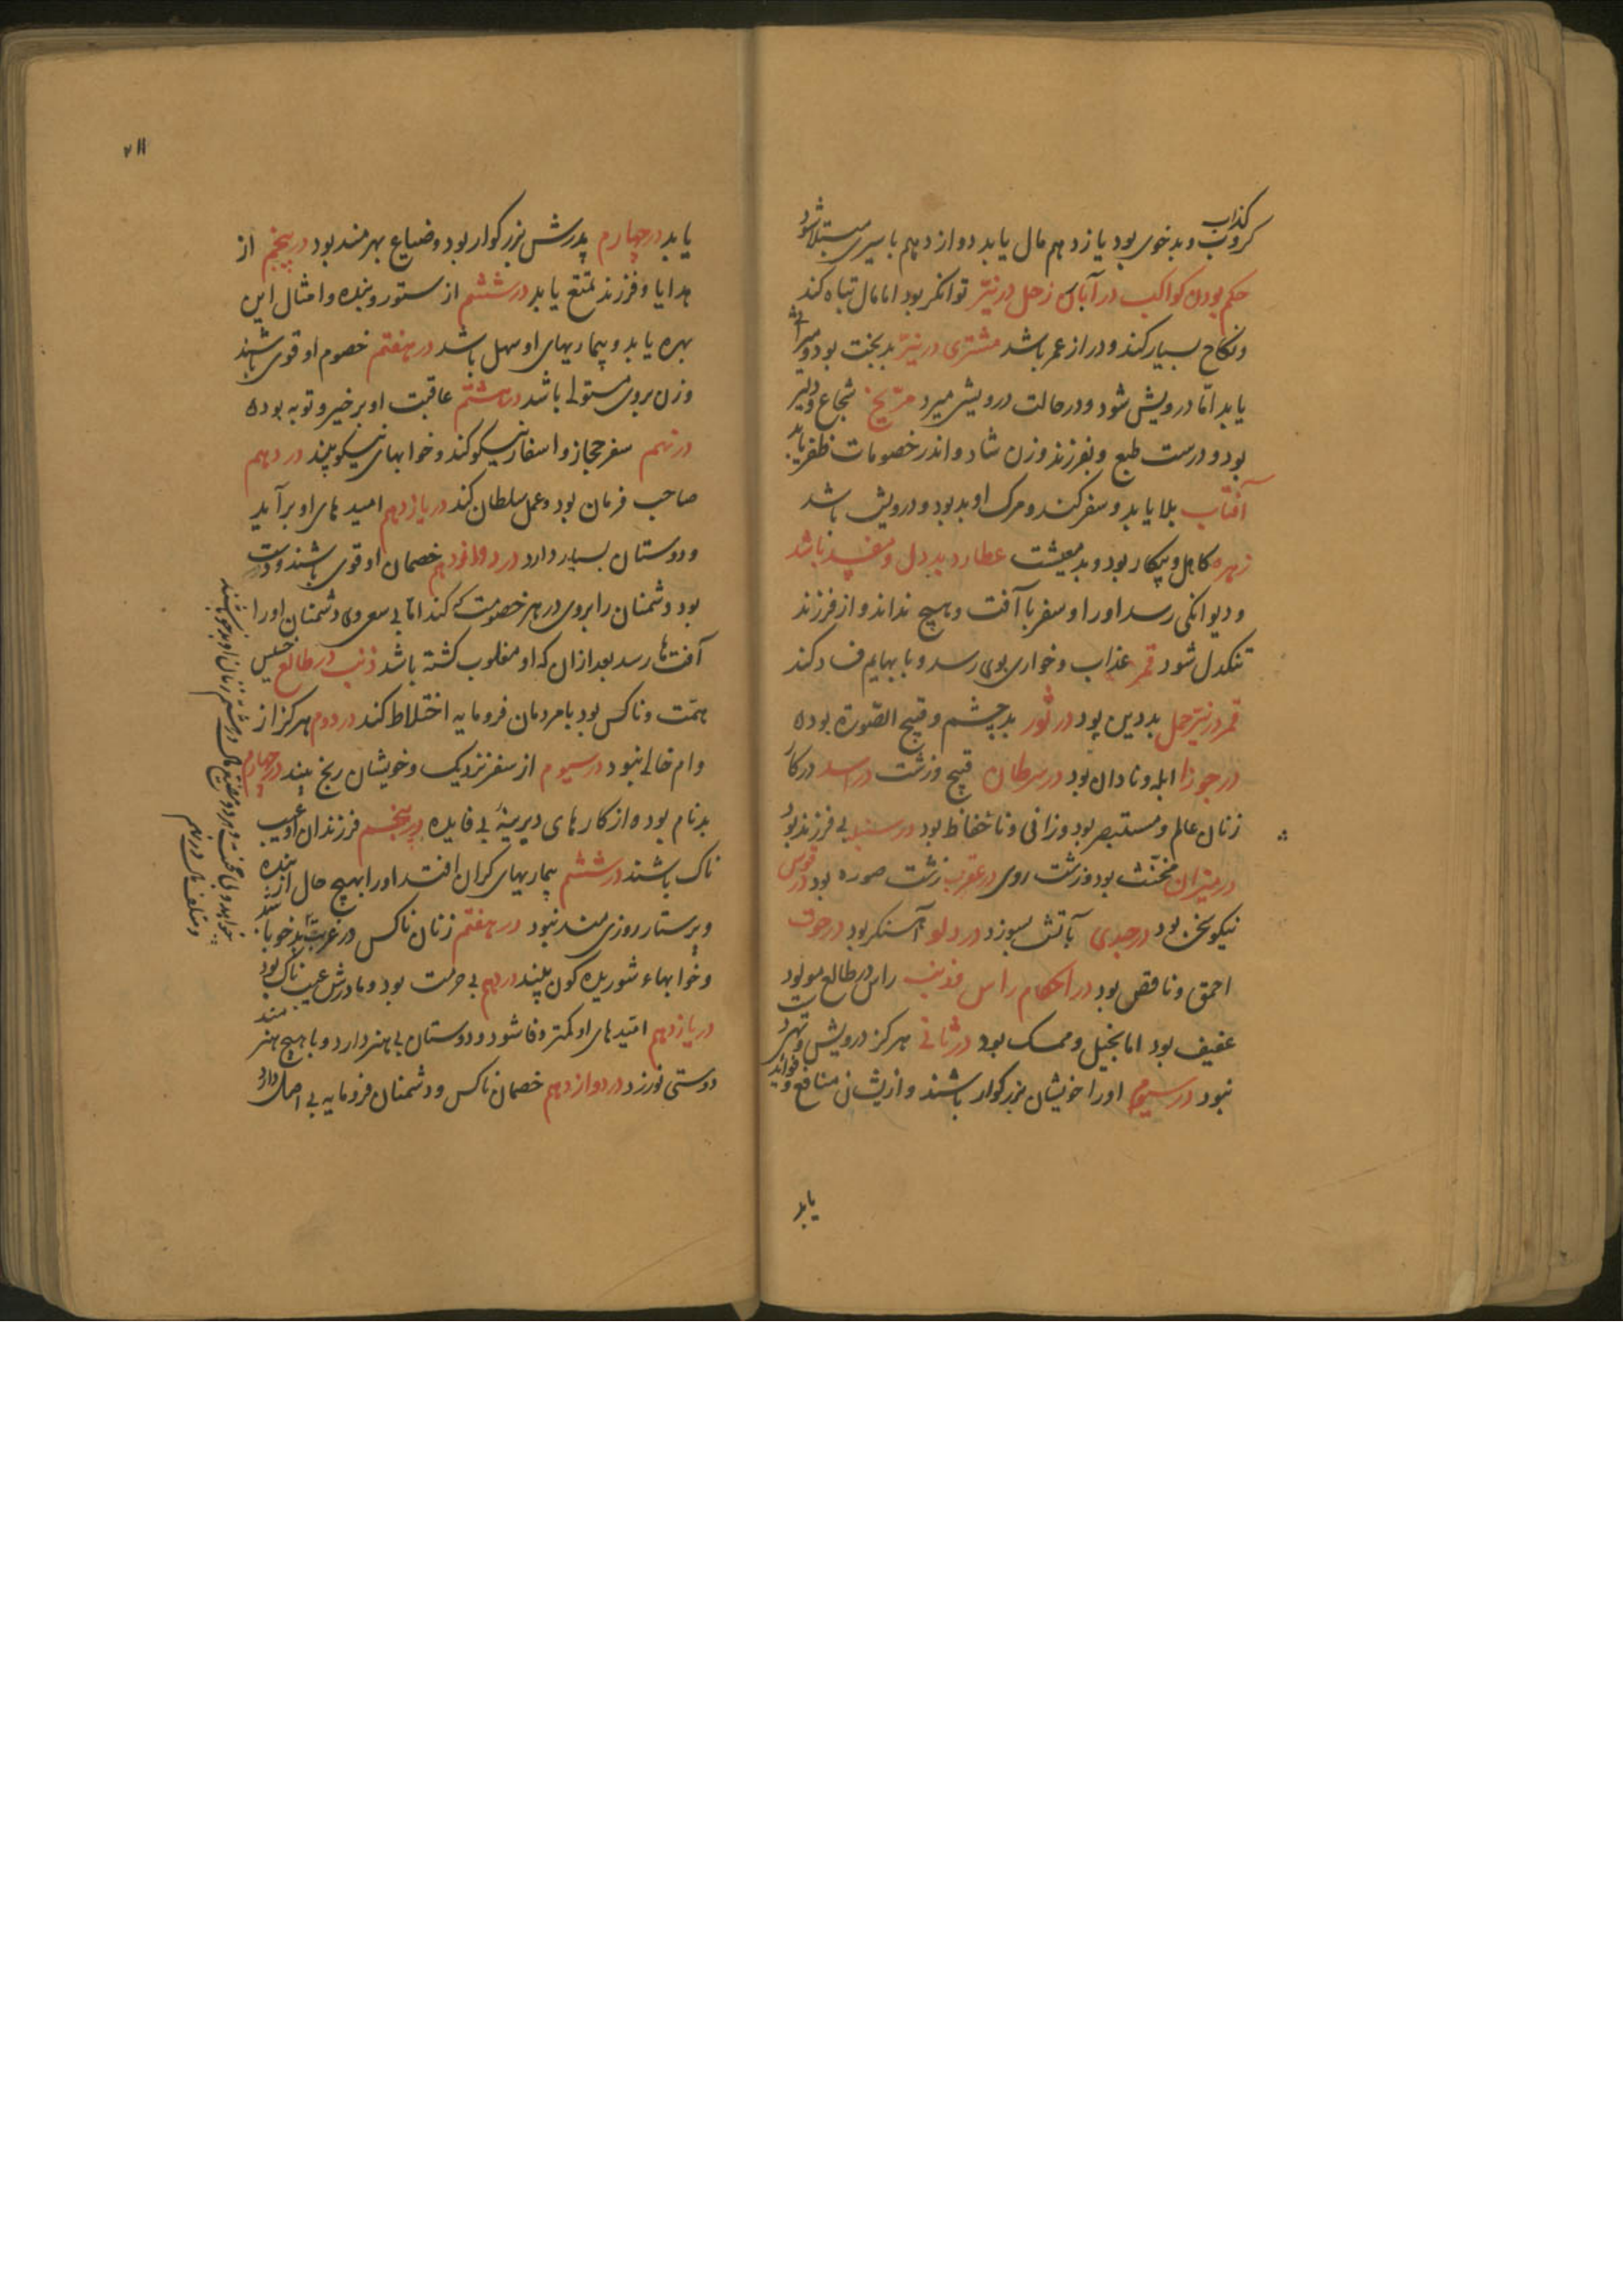 کذاب
کروب و بدخوی بود یازدهم مال یابد دوازدهم باسیری مبتلا شود
حکم بودن کواکب در آبان زحل در نیّر توانکر بود اما مال تباه کند
و نکاح بسیار کند و دراز عمر باشد مشتری در نیّر بدبخت بود و میراث
یابد امّا درویش شود و در حالت درویشی میرد مرّیخ شجاع و دلیر
بود و درست طبع و بفرزند و زن شاد و اندر خصومات ظفر یابد
آفتاب بلا یابد و سفر کند و مرک او بد بود و درویش باشد
زهره کاهل و بیکار بود و بد معیشت عطارد بددل و مفسد باشد
و دیوانکی رسد اورا و سفر با آفت و هیچ نداند و از فرزند
تنکدل شود قمر عذاب و خواری بوی رسد و با بهایم فساد کند
قمر در نیّر حمل بددین بود در ثور بدچشم و قبیح الصّورة بوده
در جوزا ابله و نادان بود در سرطان قبیح و زشت در اسد در کار
زنان عالم و مستبصر بود و زانی و ناحفاظ بود در سنبله بی فرزند بود
در میزان مخنّث بود و زشت روی در عقرب زشت صوره بود در قوس
نیکو سخن بود در جدی بآتش بسوزد در دلو آهنکر بود در حوت
احمق و ناقص بود در احکام راس و ذنب راس در طالع مولود
عفیف بود اما بخیل و ممسک بود در ثانی هرکز درویش و تهی دست
نبود در سیوم اورا خویشان بزرکوار باشند و از یشان منافع و فواید
یابد
یابد در چهارم پدرش بزرکوار بود و ضیاع بهرمند بود در پنجم از
هدایا و فرزند تمتع یابد در ششم از ستور و بنده و امثال این
بهره یابد و بیماریهای او سهل باشد در هفتم خصوم او قوی باشند
و زن بروی مستولی باشد در هشتم عاقبت او بر خیر و توبه بوده
در نهم سفر حجاز و اسفار نیکو کند و خوابهای نیکو بیند در دهم
صاحب فرمان بود و عمل سلطان کند در یازدهم امیدهای او برآید
و دوستان بسیار دارد در دوازدهم خصمان او قوی باشند و دست
بود دشمنان را بروی در هر خصومت که کند اما بی سعی وی دشمنان اورا
آفتها رسد بعد ازان که او مغلوب کشته باشد ذنب در طالع خسیس
همّت و ناکس بود با مردمان فرومایه اختلاط کند در دوم هرکز از
وام خالی نبود در سیوم از سفر نزدیک و خویشان رنج بیند در چهارم
بدنام بوده از کارهای دیرینهٔ بی فایده در پنجم فرزندان او عیب
ناک باشند در ششم بیماریهای کران افتد اورا بهیچ حال از بنده
و پرستار روزی مند نبود در هفتم زنان ناکس در غربت بدخو باشد
و خوابهاء شوریده کون بیند در دهم بی حرمت بود و مادرش عیب ناک بود
در یازدهم امّیدهای او کمتر وفا شود و دوستان بی هنر دارد و با هیچ هنرمند
دوستی نورزد در دوازدهم خصمان ناکس و دشمنان فرومایه بی اصل دارد